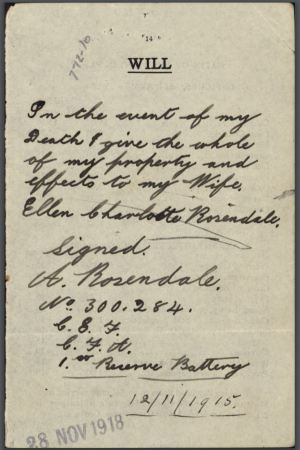 14
772-10
WILL
In the event of my
Death I give the whole
of my property and
effects to my Wife.
Ellen Charlotte Rosendale.
Signed.
A. Rosendale.
No. 300.284.
C. E. F.
C. F. A.
1.st Reserve Battery
12/11/1915.
28 NOV 1918